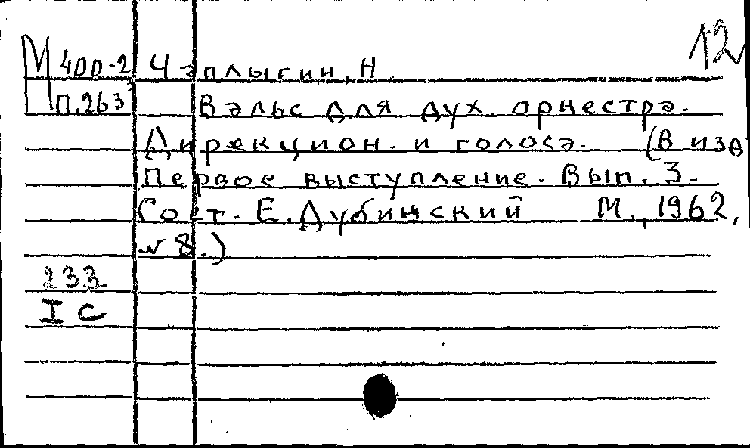 12
М 400-2 Чаплыгин, Н.
П.263 Вальс для дух. оркестра.
Дирекцион. и голоса. (В изд
Первое выступление. Вып. 3.
Сост. Е. Дубинский М., 1962,
№ 8.)
233
I C